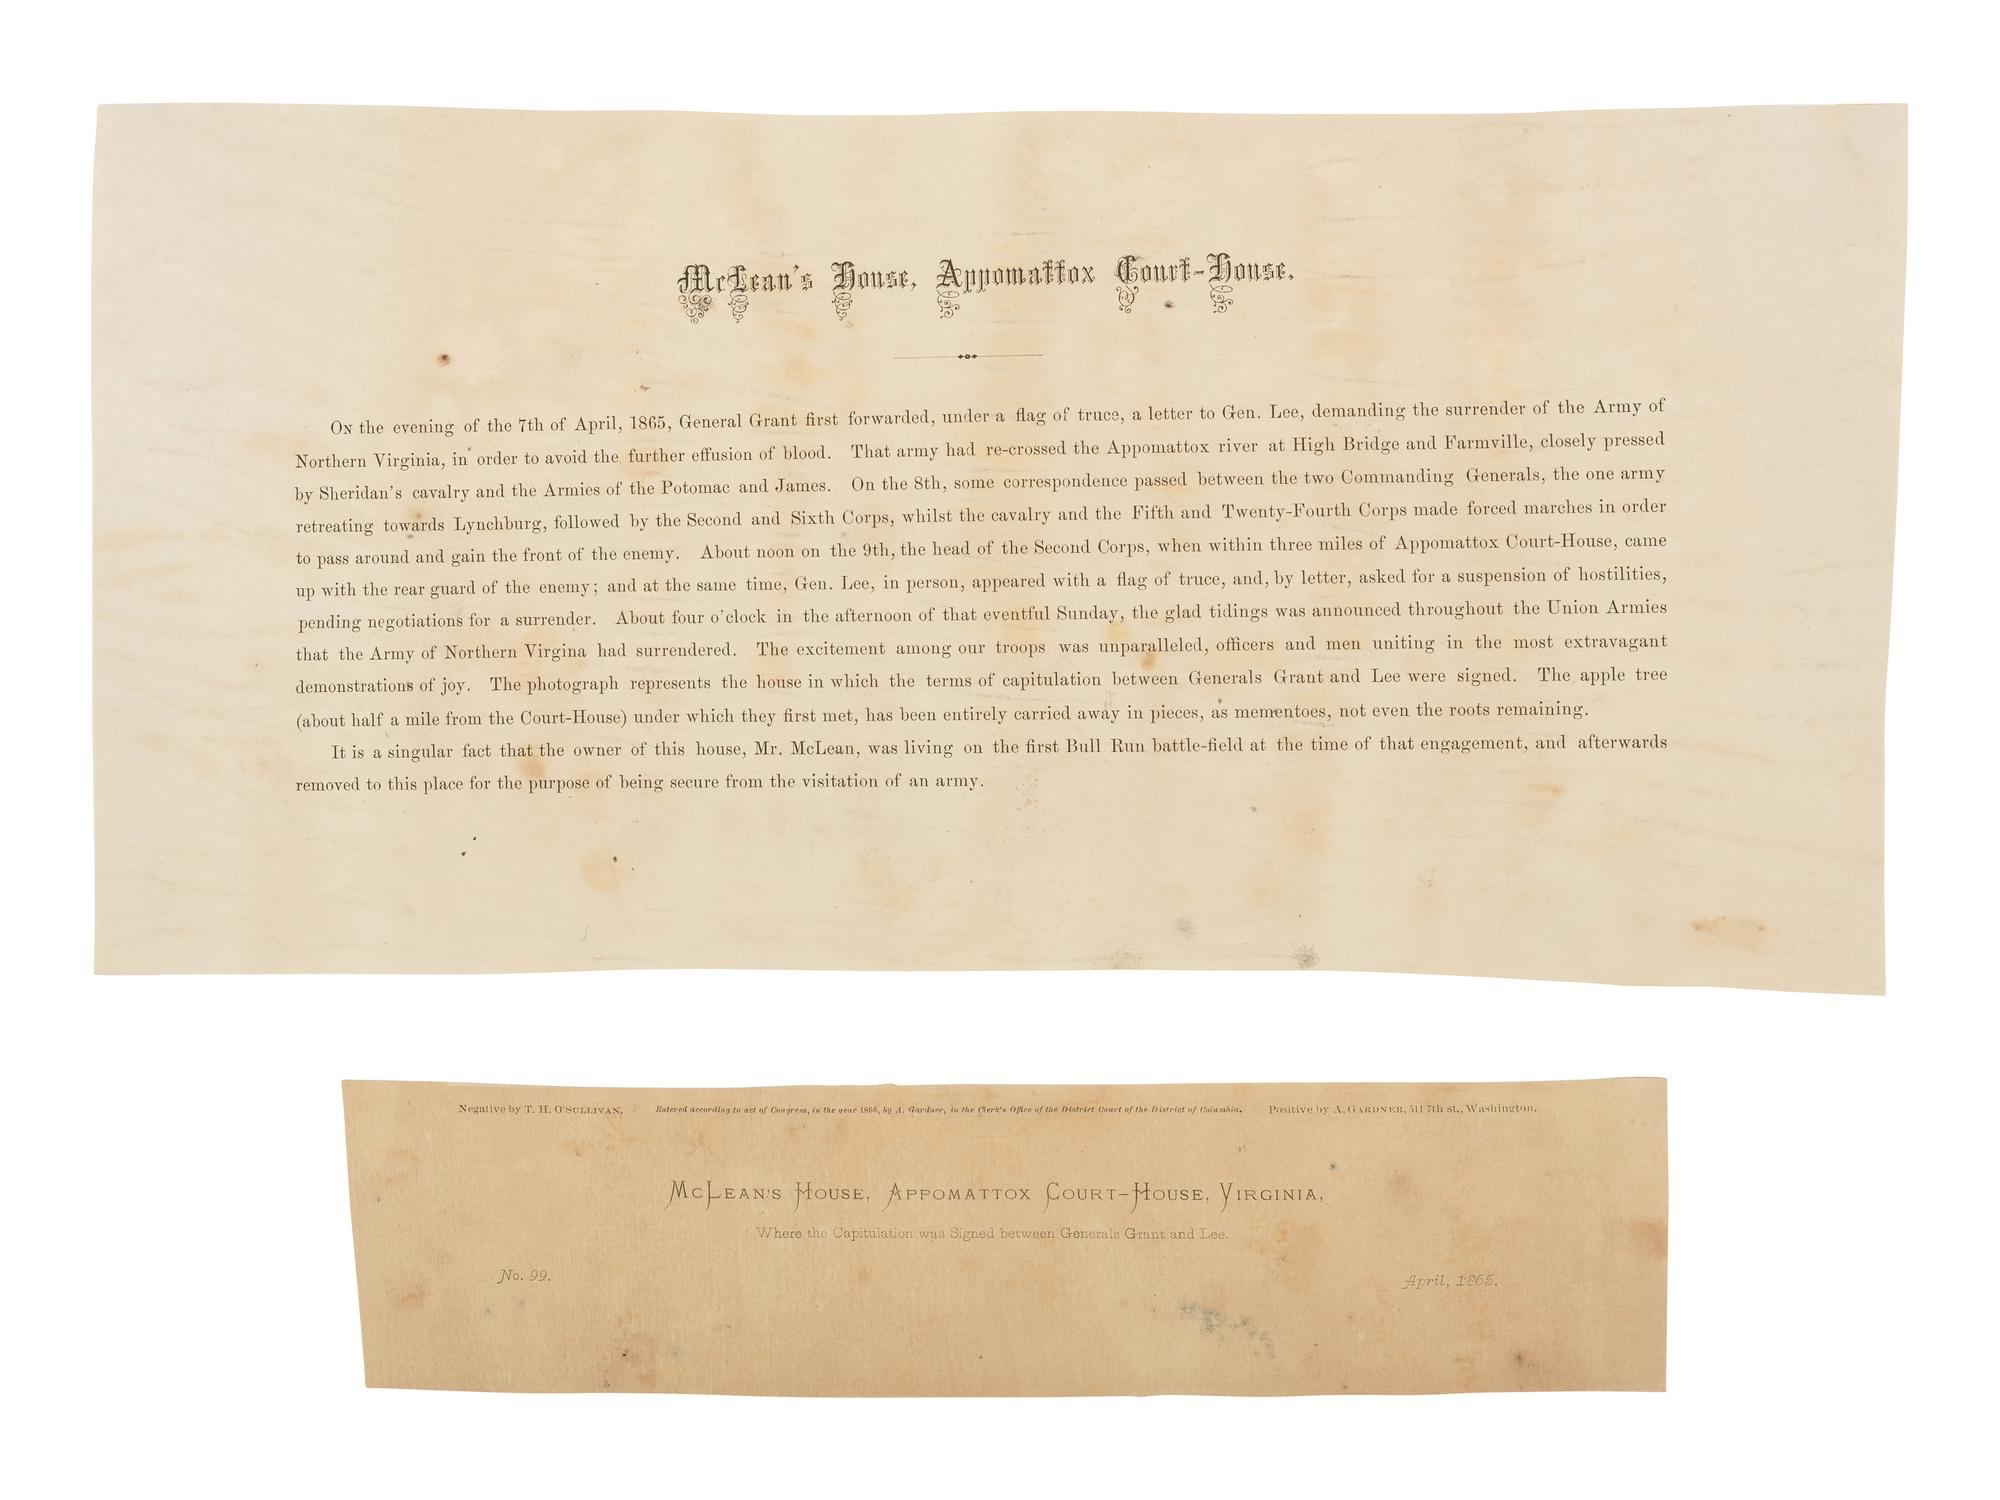 McLean's House, Appomattox Court-House.
On the evening of the 7th of April, 1865, General Grant first forwarded, under a flag of truce, a letter to Gen. Lee, demanding the surrender of the Army of
Northern Virginia, in order to avoid the further effusion of blood. That army had re-crossed the Appomattox river at High Bridge and Farmville, closely pressed
by Sheridan's cavalry and the Armies of the Potomac and James. On the 8th, some correspondence passed between the two Commanding Generals, the one army
retreating towards Lynchburg, followed by the Second and Sixth Corps, whilst the cavalry and the Fifth and Twenty-Fourth Corps made forced marches in order
to pass around and gain the front of the enemy. About noon on the 9th, the head of the Second Corps, when within three miles of Appomattox Court-House, came
up with the rear guard of the enemy; and at the same time, Gen. Lee, in person, appeared with a flag of truce, and, by letter, asked for a suspension of hostilities,
pending negotiations for a surrender. About four o'clock in the afternoon of that eventful Sunday, the glad tidings was announced throughout the Union Armies
that the Army of Northern Virgina had surrendered. The excitement among our troops was unparalleled, officers and men uniting in the most extravagant
demonstrations of joy. The photograph represents the house in which the terms of capitulation between Generals Grant and Lee were signed. The apple tree
(about half a mile from the Court-House) under which they first met, has been entirely carried away in pieces, as mementoes, not even the roots remaining.
It is a singular fact that the owner of this house, Mr. McLean, was living on the first Bull Run battle-field at the time of that engagement, and afterwards
removed to this place for the purpose of being secure from the visitation of an army.
Negative by T. H. O'SULLIVAN. Entered according to act of Congress, in the year 1866, by A. Gardner, in the Clerk's Office of the District Court of the District of Columbia. Positive by A. GARDNER, 511 7th st., Washington.
McLEAN'S HOUSE, APPOMATTOX COURT-HOUSE, VIRGINIA,
Where the Capitulation was Signed between Generals Grant and Lee.
No. 99. April, 1865.